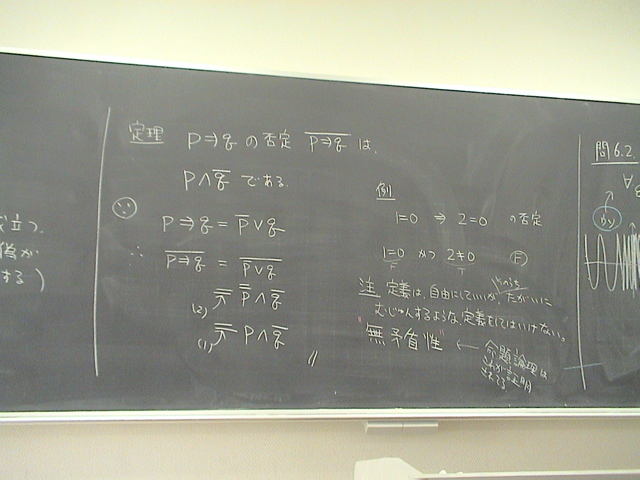 定理 P⇒q の否定 \overline{P⇒q} は、
P∧\overline{q} である.
∵ P⇒q = \overline{P}∨q
∴ \overline{P⇒q} = \overline{\overline{P}∨q}
(2) = \overline{\overline{P}}∧\overline{q}
(1) = P∧\overline{q} //
例
1=0 ⇒ 2=0 の否定
1=0 かつ 2≠0 Ⓕ
F T
注 定義は、自由にしていいが、たがいに
むじゅんするような定義をしてはいけない。
"無矛盾性" ← 命題論理は
これが証明
されてる
問6.2.
by